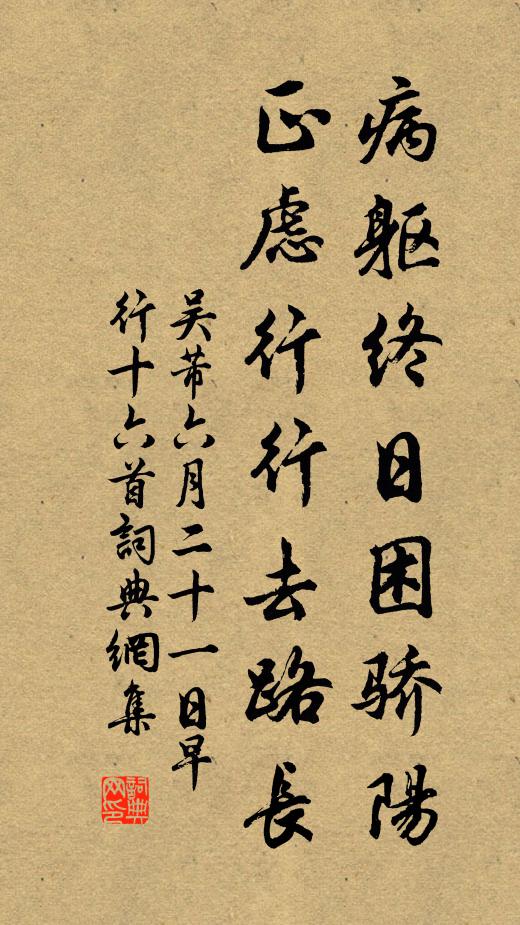 病躯终日困骄陽
正慮行行去路長
吴芾六月二十一日早
行十六首詞典網集
詞典
网印